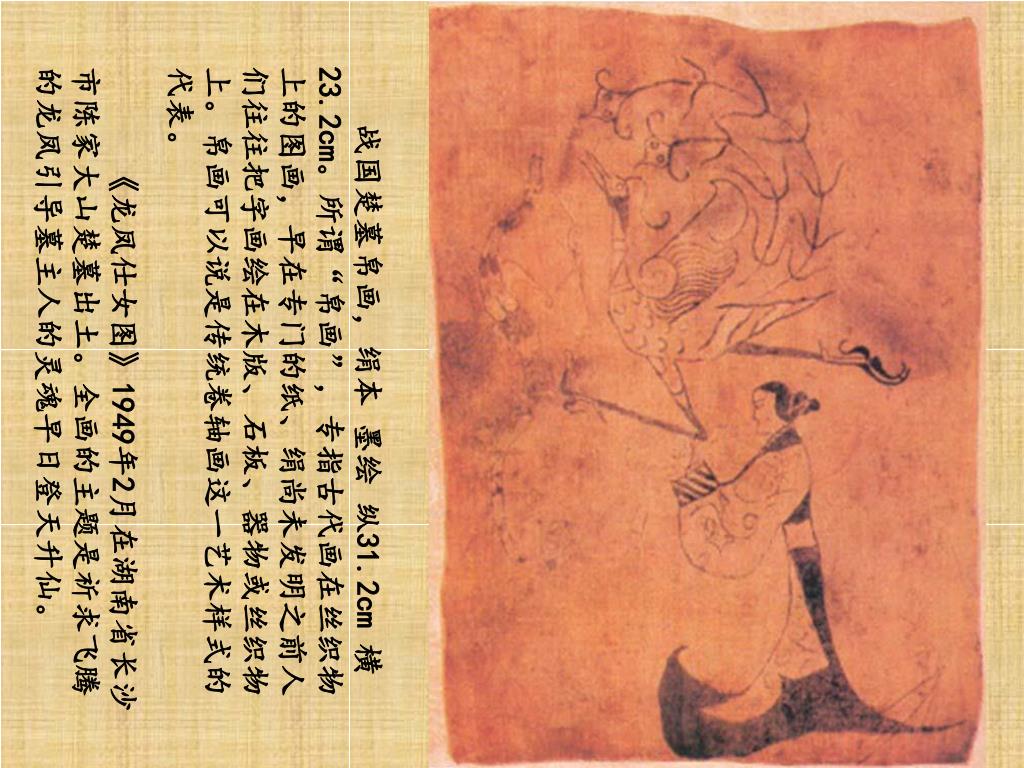 战国楚墓帛画，绢本 墨绘 纵31.2cm 横
23.2cm。所谓“帛画”，专指古代画在丝织物
上的图画，早在专门的纸、绢尚未发明之前人
们往往把字画绘在木版、石板、器物或丝织物
上。帛画可以说是传统卷轴画这一艺术样式的
代表。
《龙凤仕女图》1949年2月在湖南省长沙
市陈家大山楚墓出土。全画的主题是祈求飞腾
的龙凤引导墓主人的灵魂早日登天升仙。